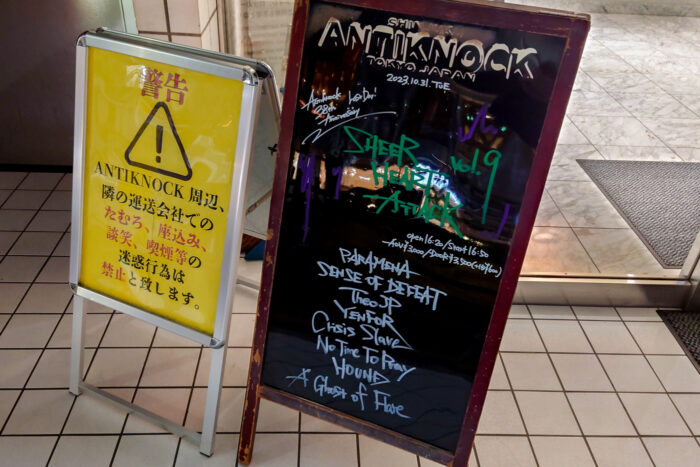 警告
ANTIKNOCK 周辺、
隣の運送会社での
たむろ、座込み、
談笑、喫煙等の
迷惑行為は
禁止と致します。
SHIN
ANTIKNOCK
TOKYO JAPAN
2023.10.31. TUE
Antiknock
38th
Anniversary
SHEER
HEART
ATTACK
vol.9
open 16:20/Start 16:50
Adv ¥3000/Door ¥3,500(+D¥600)
PARAMENA
SENSE OF DEFEAT
Theo JP
VENFOR
Crisis Slave
No Time To Pray
HOUND
A Ghost of Flare